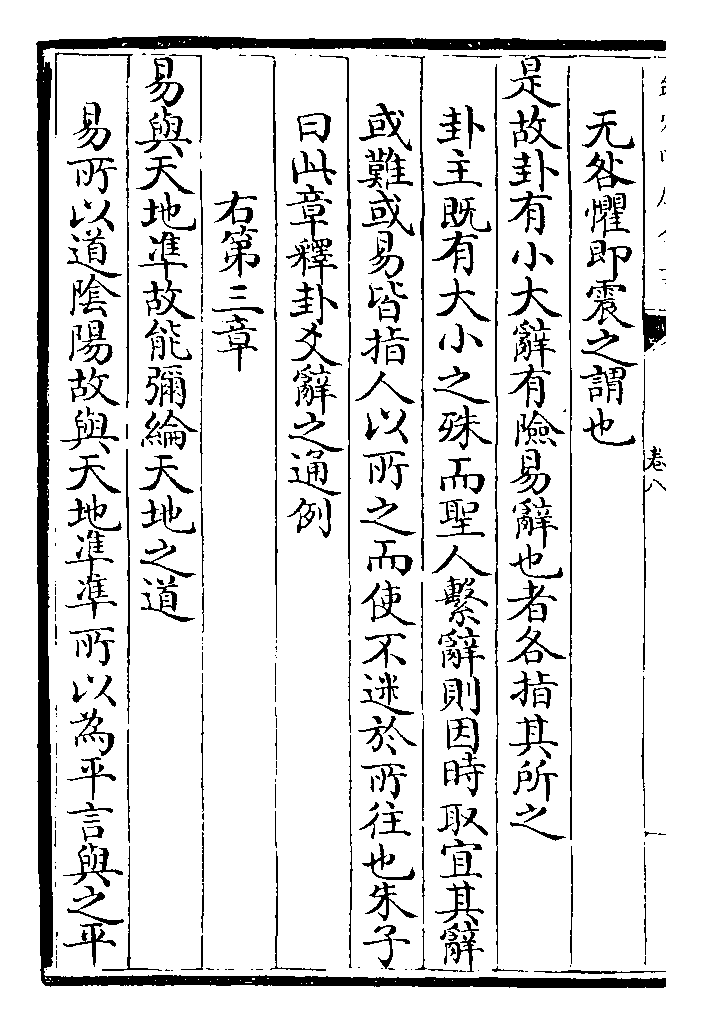 卷八
无咎懼即震之謂也
是故卦有小大辭有險易辭也者各指其所之
卦主既有大小之殊而聖人繫辭則因時取宜其辭
或難或易皆指人以所之而使不迷於所往也朱子
曰此章釋卦爻辭之通例
右第三章
易與天地準故能彌綸天地之道
易所以道陰陽故與天地準準所以為平言與之平